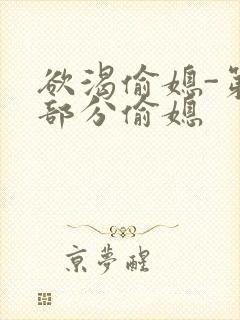 欲渴偷媳-第
部分偷媳
京夢醒